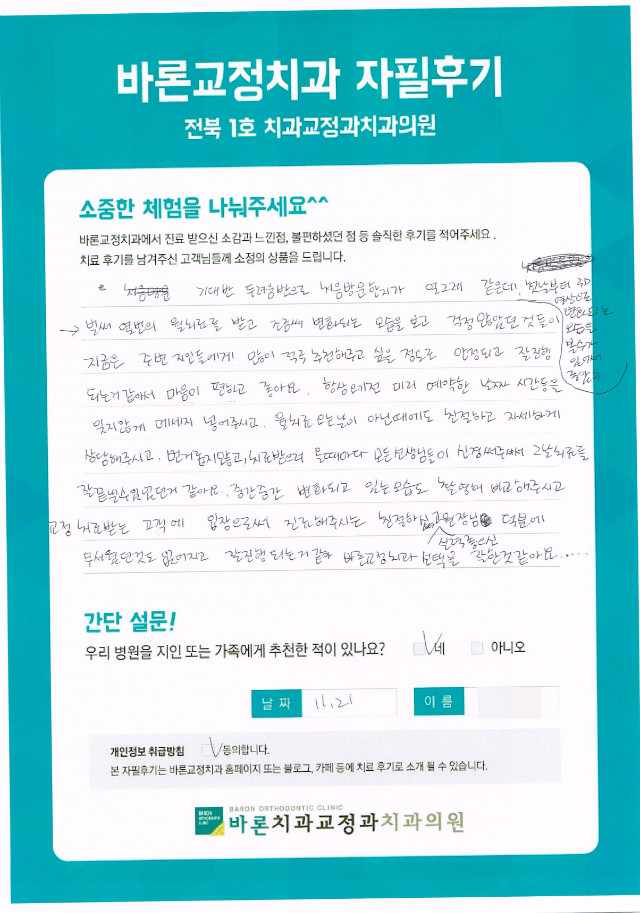 바론교정치과 자필후기
전북 1호 치과교정과치과의원
소중한 체험을 나눠주세요^^
바론교정치과에서 진료 받으신 소감과 느낀점, 불편하셨던 점 등 솔직한 후기를 적어주세요.
치료 후기를 남겨주신 고객님들께 소정의 상품을 드립니다.
* 기대반 두려움반으로 처음방문한지가 엊그제 같은데 첫날부터 3D
영상으로
변화되는
모습을
볼수가
있어서
좋았구
→ 벌써 열번의 월치료를 받고 조금씩 변화되는 모습을 보고 걱정 많았던것들이
지금은 주변 지인들에게 많이 적극 추천해주고 싶은 정도로 안정되고 잘진행
되는거같아서 마음이 편하고 좋아요. 항상 미리 예약한 날짜 시간등을
잊지않게 메세지 넣어주시고, 월치료 오는날이 아닌때에도 친절하고 자세하게
상담해주시고, 번거롭지않고, 치료받으러 올때마다 모든선생님들이 신경써주셔서 그날치료를
잘끝낼수있었던거 같아요. 중간중간 변화되고 있는모습도 촬영해 비교해주시고
교정 치료받는 고객에 입장으로써 진료해주시는 친절하시고 원장님 덕분에
실력좋으신
무서웠던것도 없어지고 잘진행되는거같아 바론교정치과 선택을 잘한것같아요.....
간단 설문!
우리 병원을 지인 또는 가족에게 추천한 적이 있나요? 네 아니오
날 짜 11.21 이 름
개인정보 취급방침 동의합니다.
본 자필후기는 바론교정치과 홈페이지 또는 블로그, 카페 등에 치료 후기로 소개 될 수 있습니다.
BARON ORTHODONTIC CLINIC
바론치과교정과치과의원